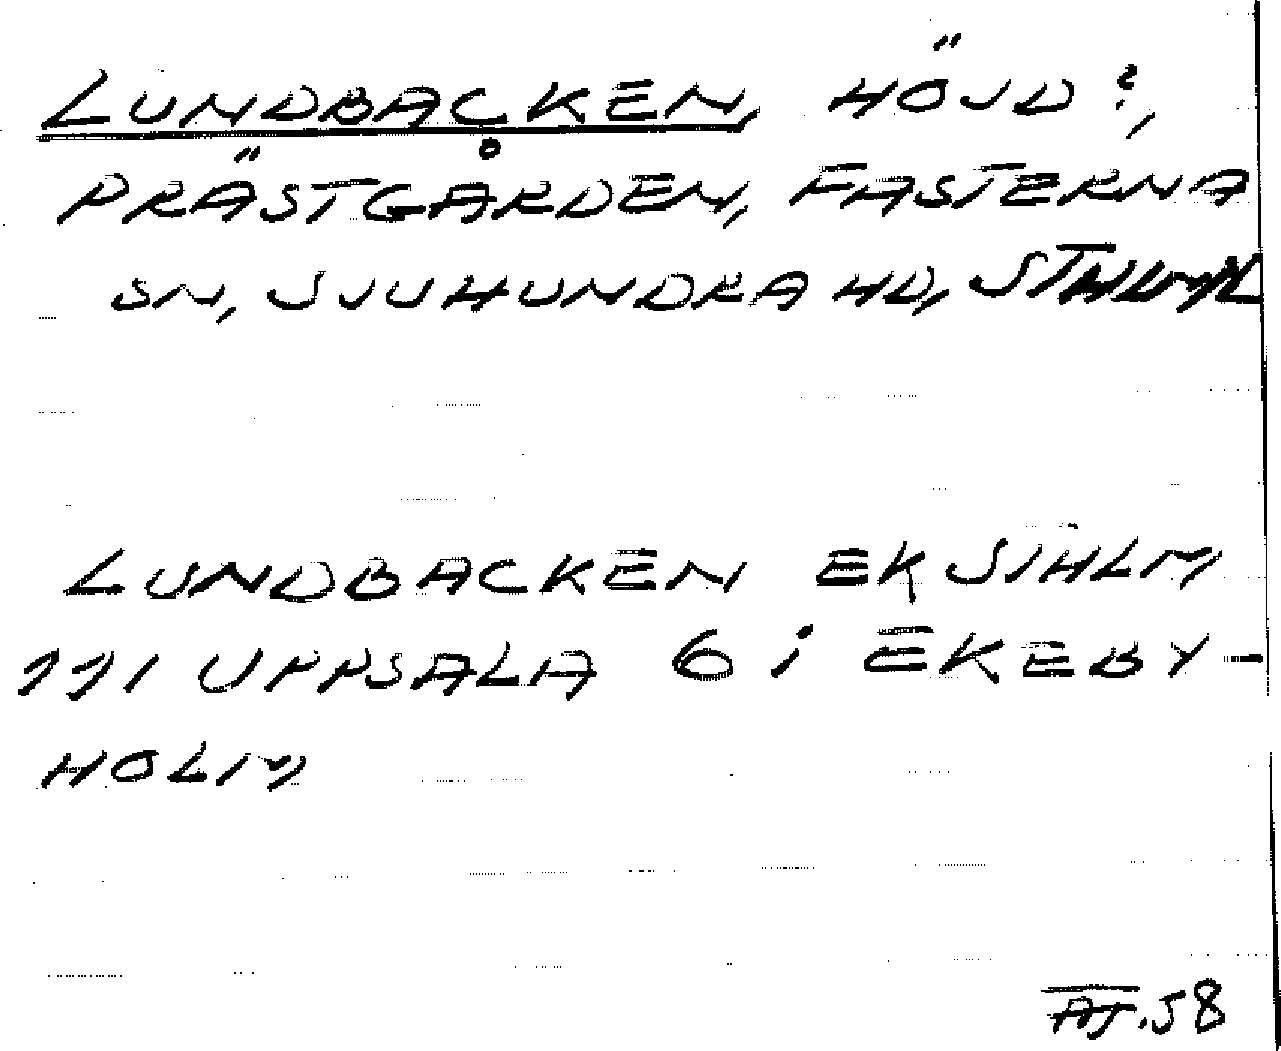 LUNDBACKEN, HÖJD?,
PRÄSTGÅRDEN, FASTERNA
SN, SJUHUNDRA HD, STHLM L
LUNDBACKEN EK STHLM
111 UPPSALA 6 i EKEBY-
HOLM
AJ. 58